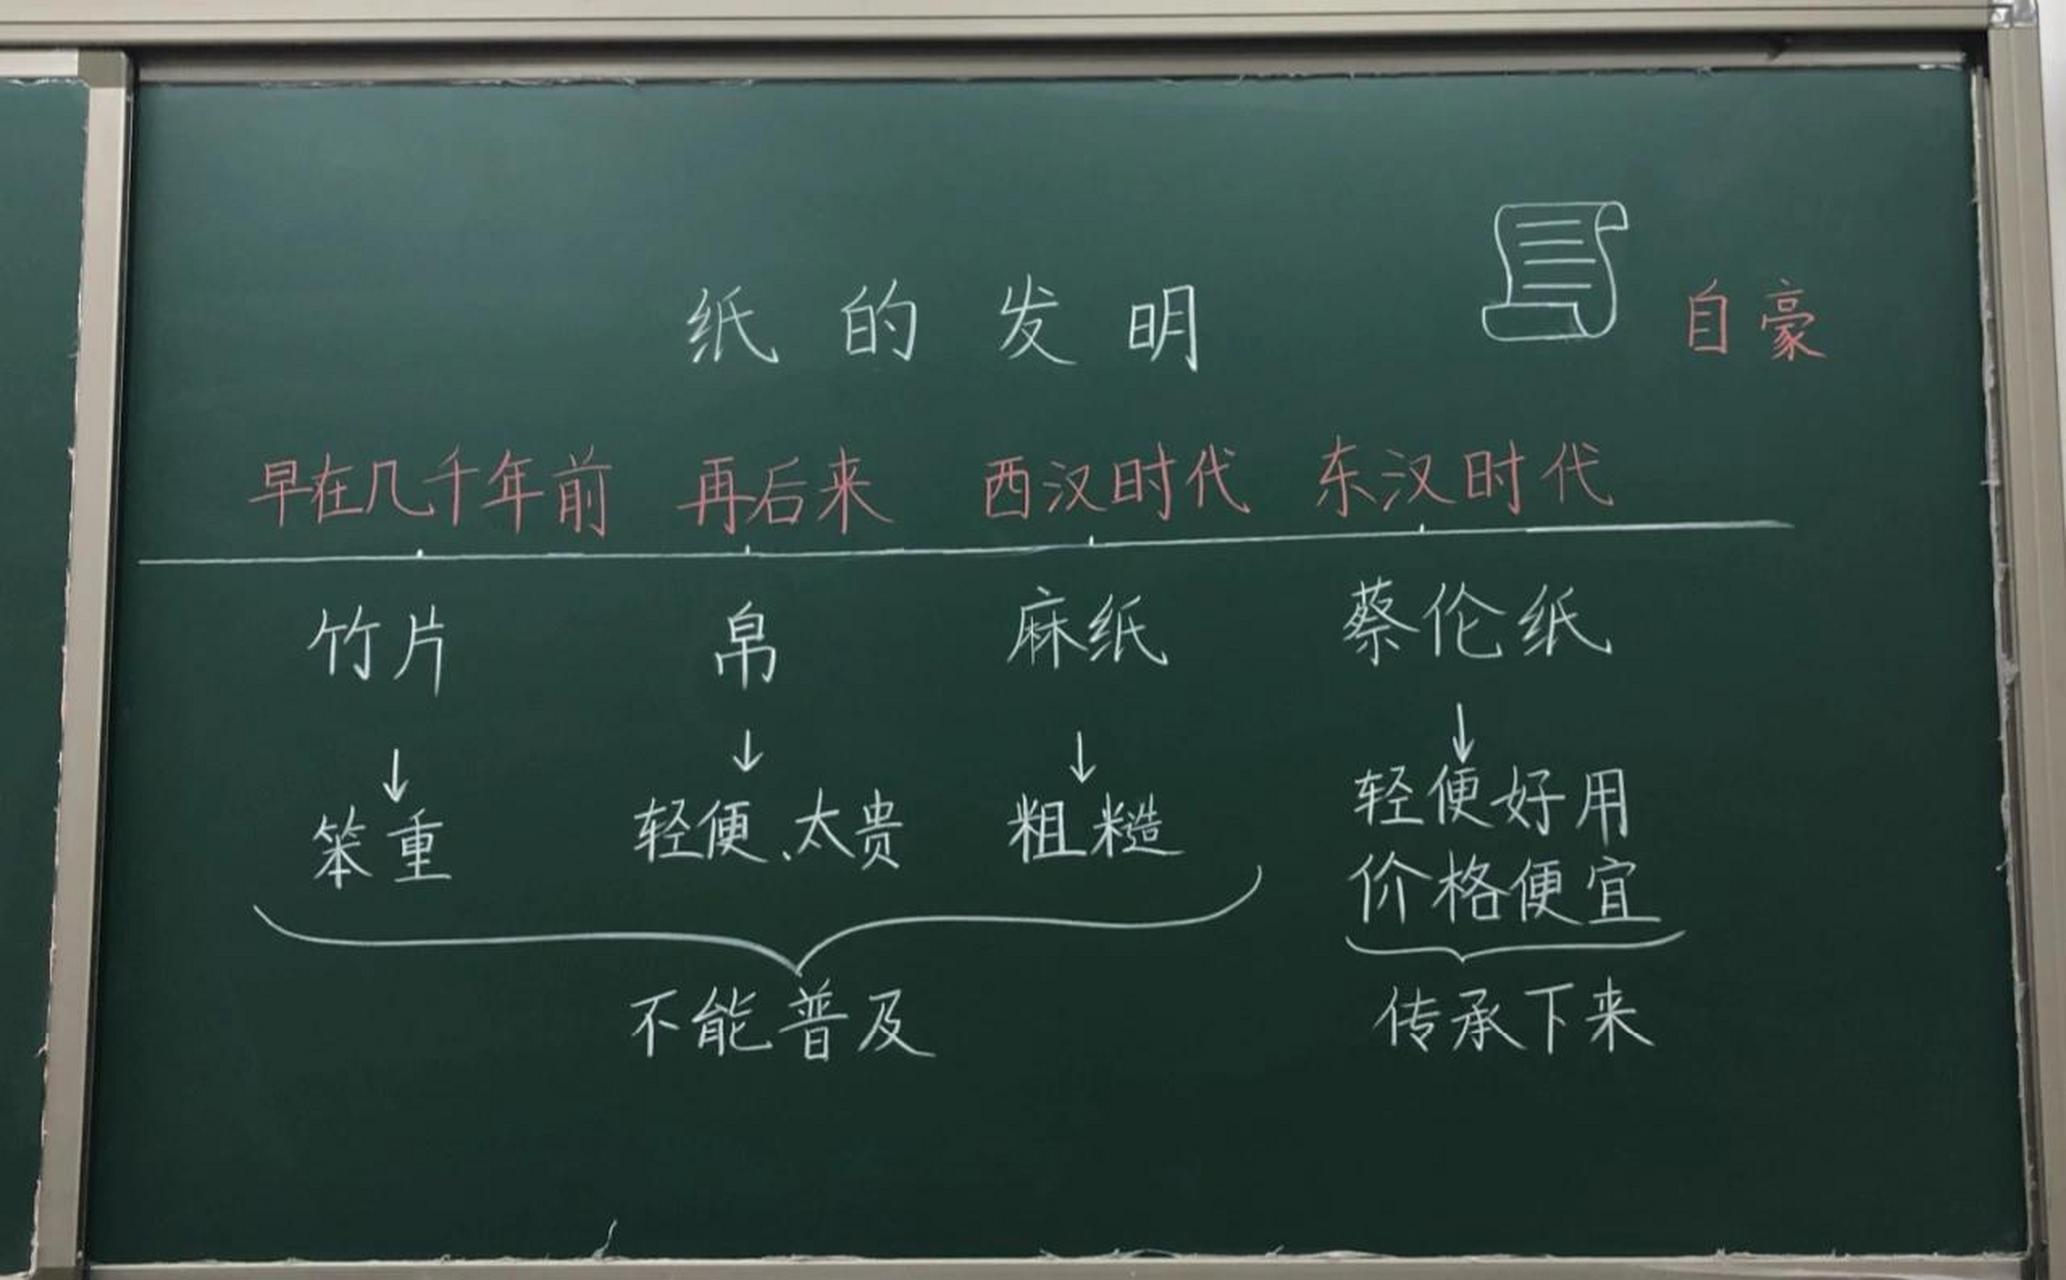 纸的发明
自豪
早在几千年前 再后来 西汉时代 东汉时代
竹片 帛 麻纸 蔡伦纸
笨重 轻便、太贵 粗糙 轻便好用
价格便宜
不能普及 传承下来